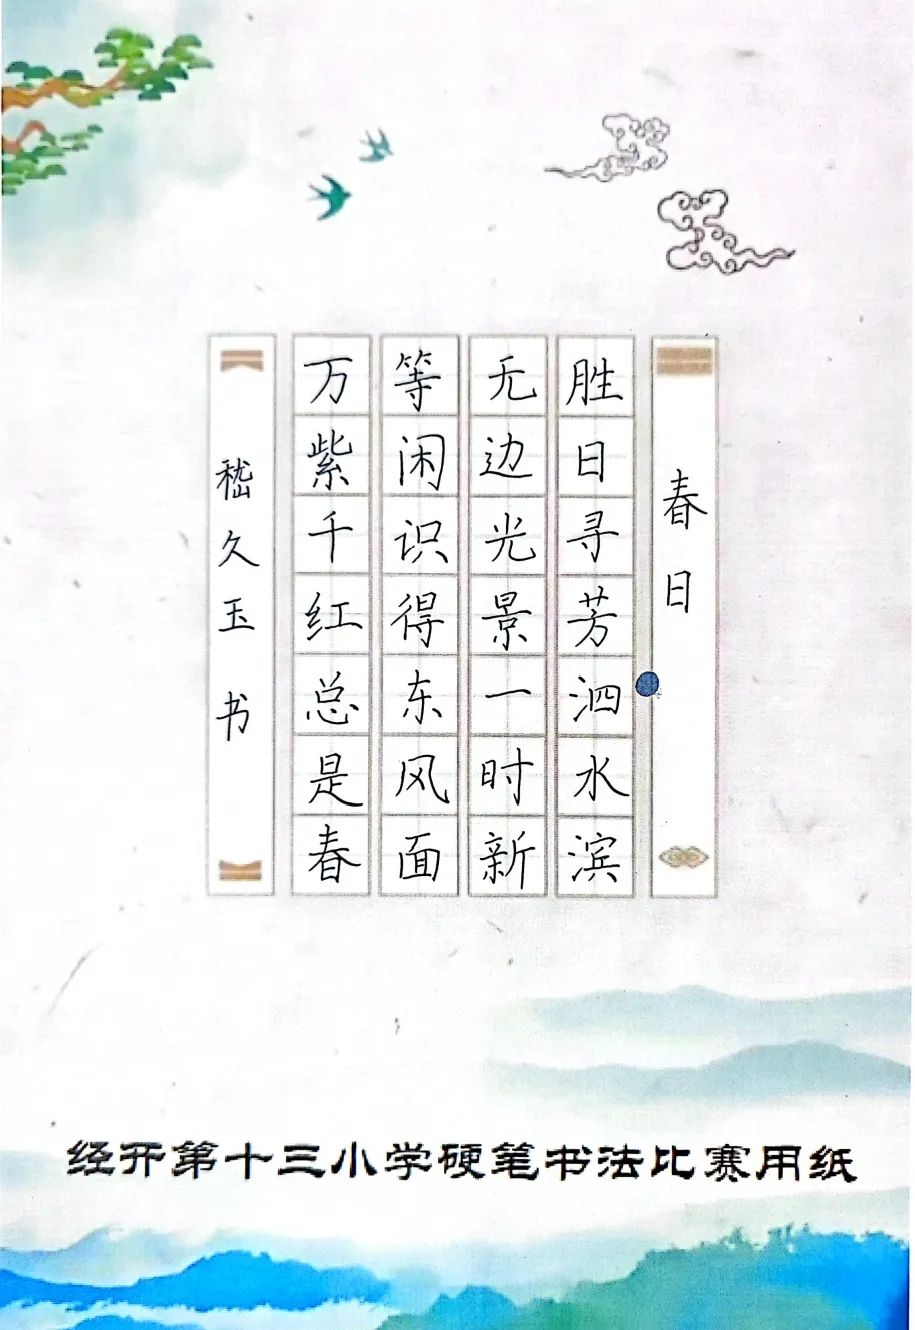 春日
胜日寻芳泗水滨
无边光景一时新
等闲识得东风面
万紫千红总是春
嵇久玉 书
经开第十三小学硬笔书法比赛用纸